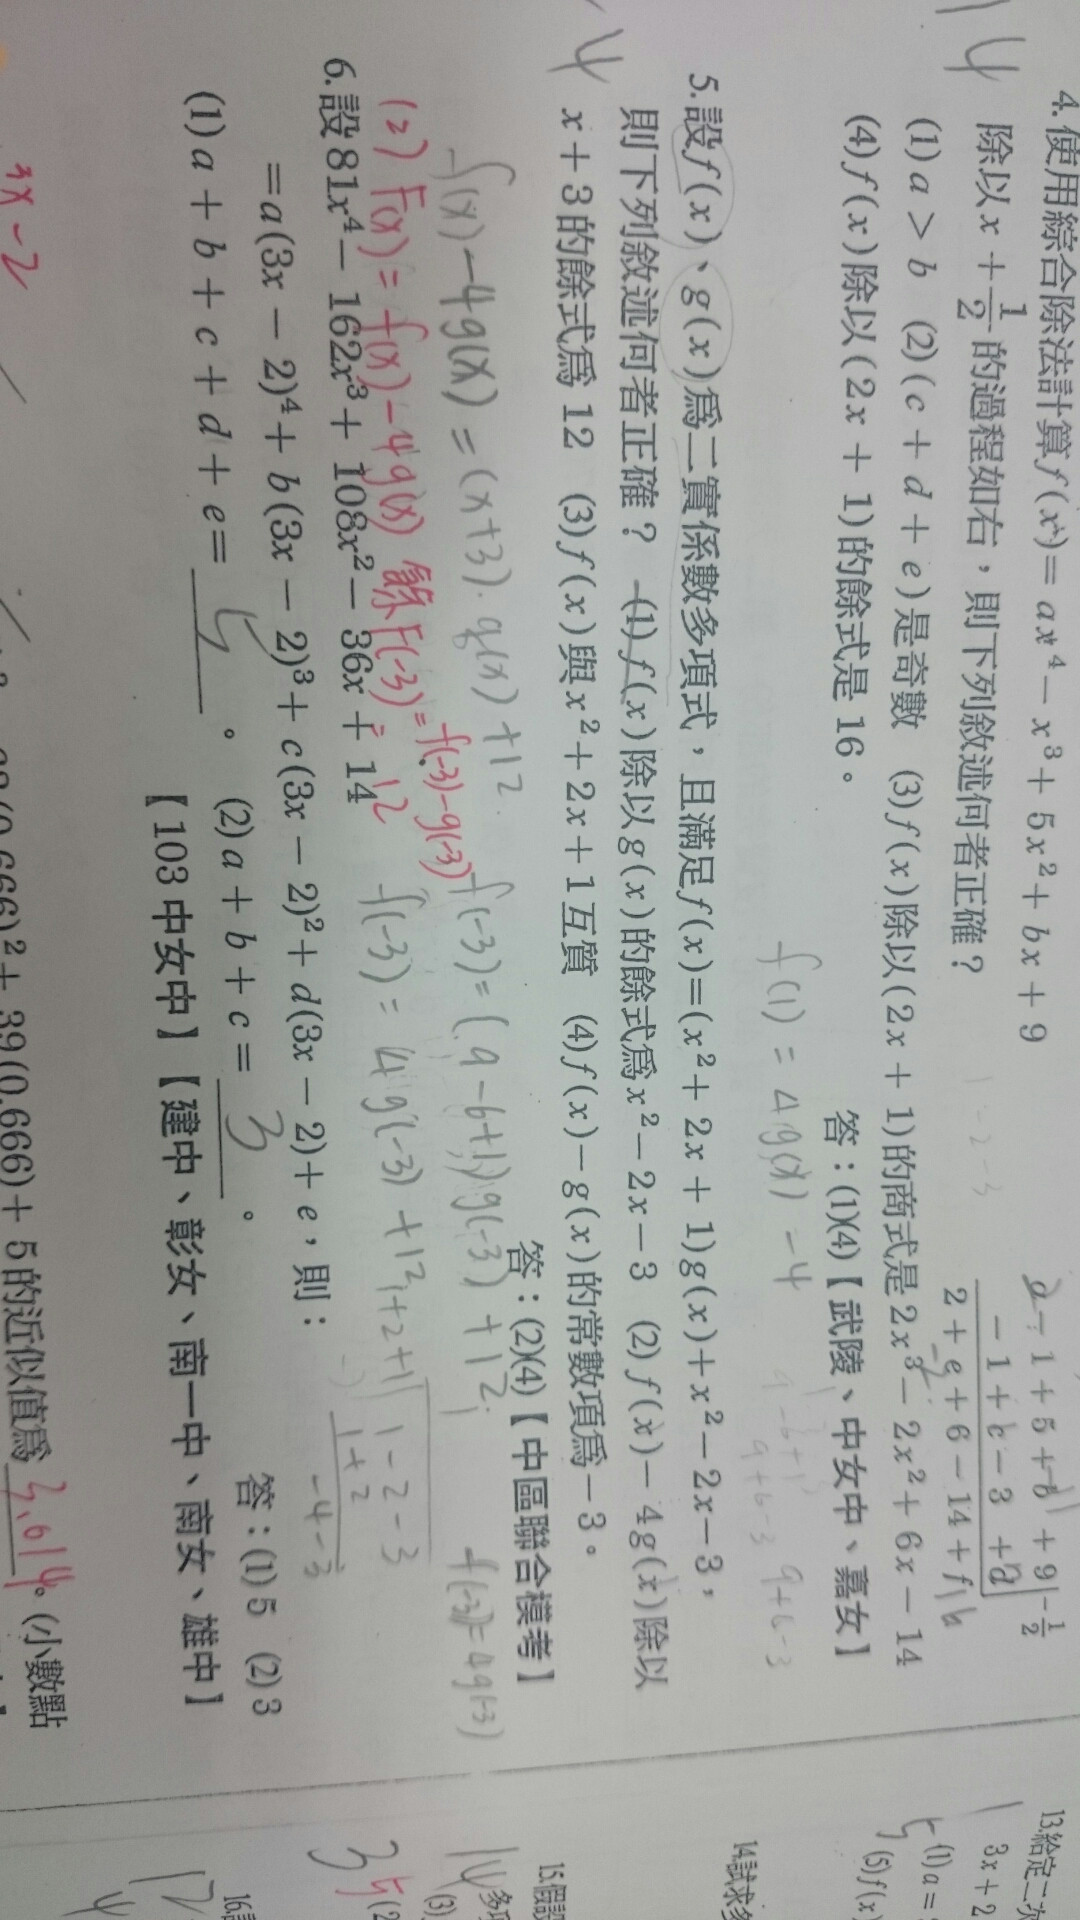 4.使用綜合除法計算f(x)=ax⁴－x³+5x²+bx+9
除以x+1/2的過程如右，則下列敘述何者正確？
(1)a>b (2)(c+d+e)是奇數 (3)f(x)除以(2x+1)的商式是2x³－2x²+6x－14
(4)f(x)除以(2x+1)的餘式是16。
答：(1)(4)【武陵、中女中、嘉女】
f(1)=4g(x)-4
5.設f(x)、g(x)爲二實係數多項式，且滿足f(x)=(x²+2x+1)g(x)+x²－2x－3，
則下列敘述何者正確？ (1)f(x)除以g(x)的餘式爲x²－2x－3 (2)f(x)－4g(x)除以
x+3的餘式爲12 (3)f(x)與x²+2x+1互質 (4)f(x)－g(x)的常數項爲－3。
答：(2)(4)【中區聯合模考】
f(x)-4g(x)=(x+3)·q(x)+12
f(-3)=(9-6+1)g(-3)+12
f(-3)=4g(-3)
(2) F(x)=f(x)-4g(x) 餘F(-3)=f(-3)-g(-3)
f(-3)=4g(-3)+12
=12
6.設81x⁴－162x³+108x²－36x+14
=a(3x－2)⁴+b(3x－2)³+c(3x－2)²+d(3x－2)+e，則：
(1)a+b+c+d+e= 5 。 (2)a+b+c= 3 。
答：(1)5 (2)3
【103中女中】【建中、彰女、南一中、南女、雄中】
(0.666)²+39(0.666)+5的近似值爲 3.614。(小數點
3x-2
13.給定二次
3x+2
(1)a=
(5)f(x)
14.試求多
15.假設
多項
(3)
35
16.